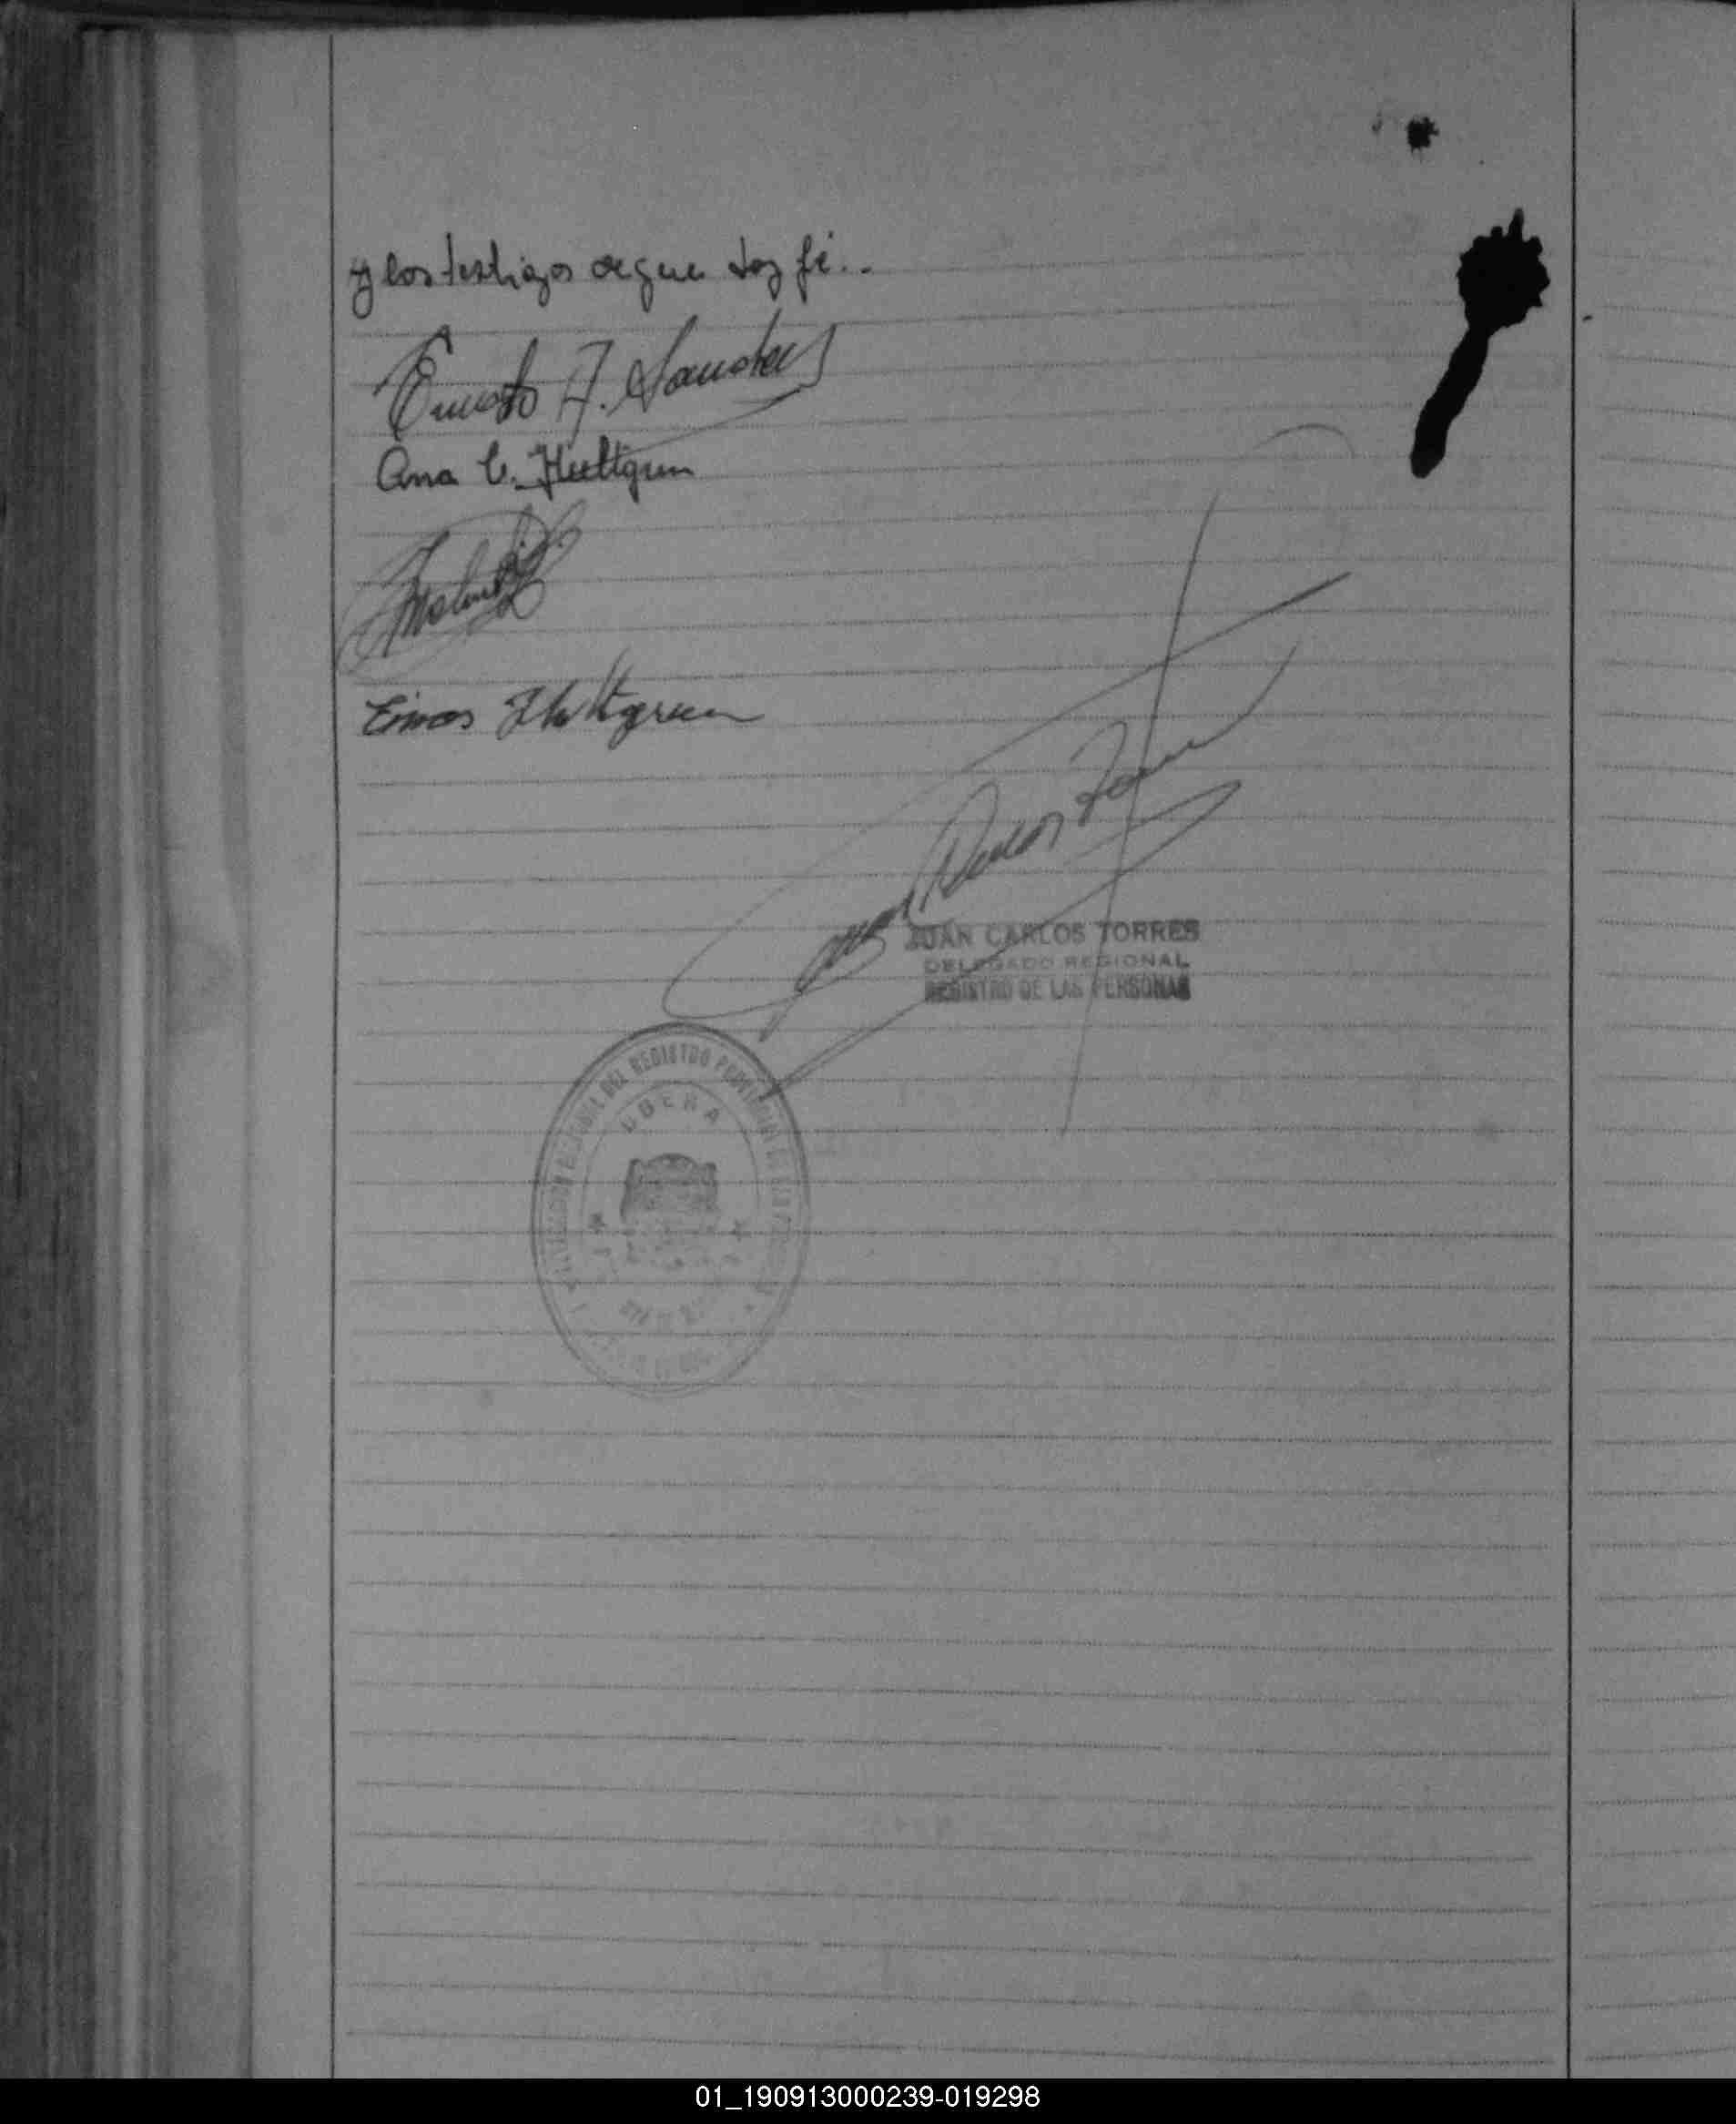 y los testigos de que doy fé..
Ernesto A. Sanchez
Ana C. Hultgren
Hultgren
JUAN CARLOS TORRES
DELEGADO REGIONAL
REGISTRO DE LAS PERSONAS
DEL REGISTRO PROVINCIAL DE LAS
OBERA
01_190913000239-019298